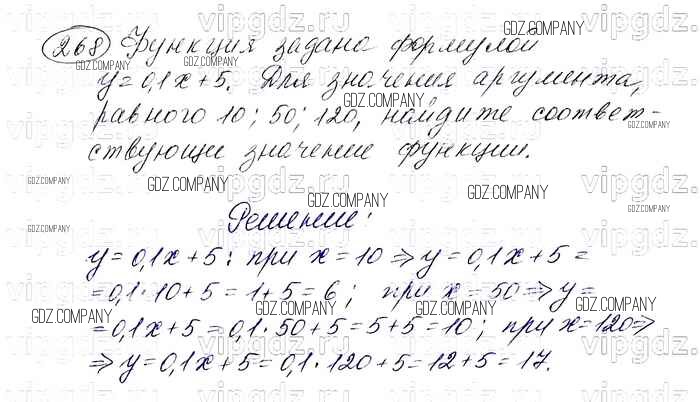 268 Функция задана формулой
y = 0,1x + 5. Для значения аргумента,
равного 10; 50; 120, найдите соответ-
ствующее значение функции.
Решение:
y = 0,1x + 5: при x = 10 ⇒ y = 0,1x + 5 =
= 0,1·10 + 5 = 1 + 5 = 6; при x = 50 ⇒ y =
= 0,1x + 5 = 0,1·50 + 5 = 5 + 5 = 10; при x = 120 ⇒
⇒ y = 0,1x + 5 = 0,1·120 + 5 = 12 + 5 = 17.